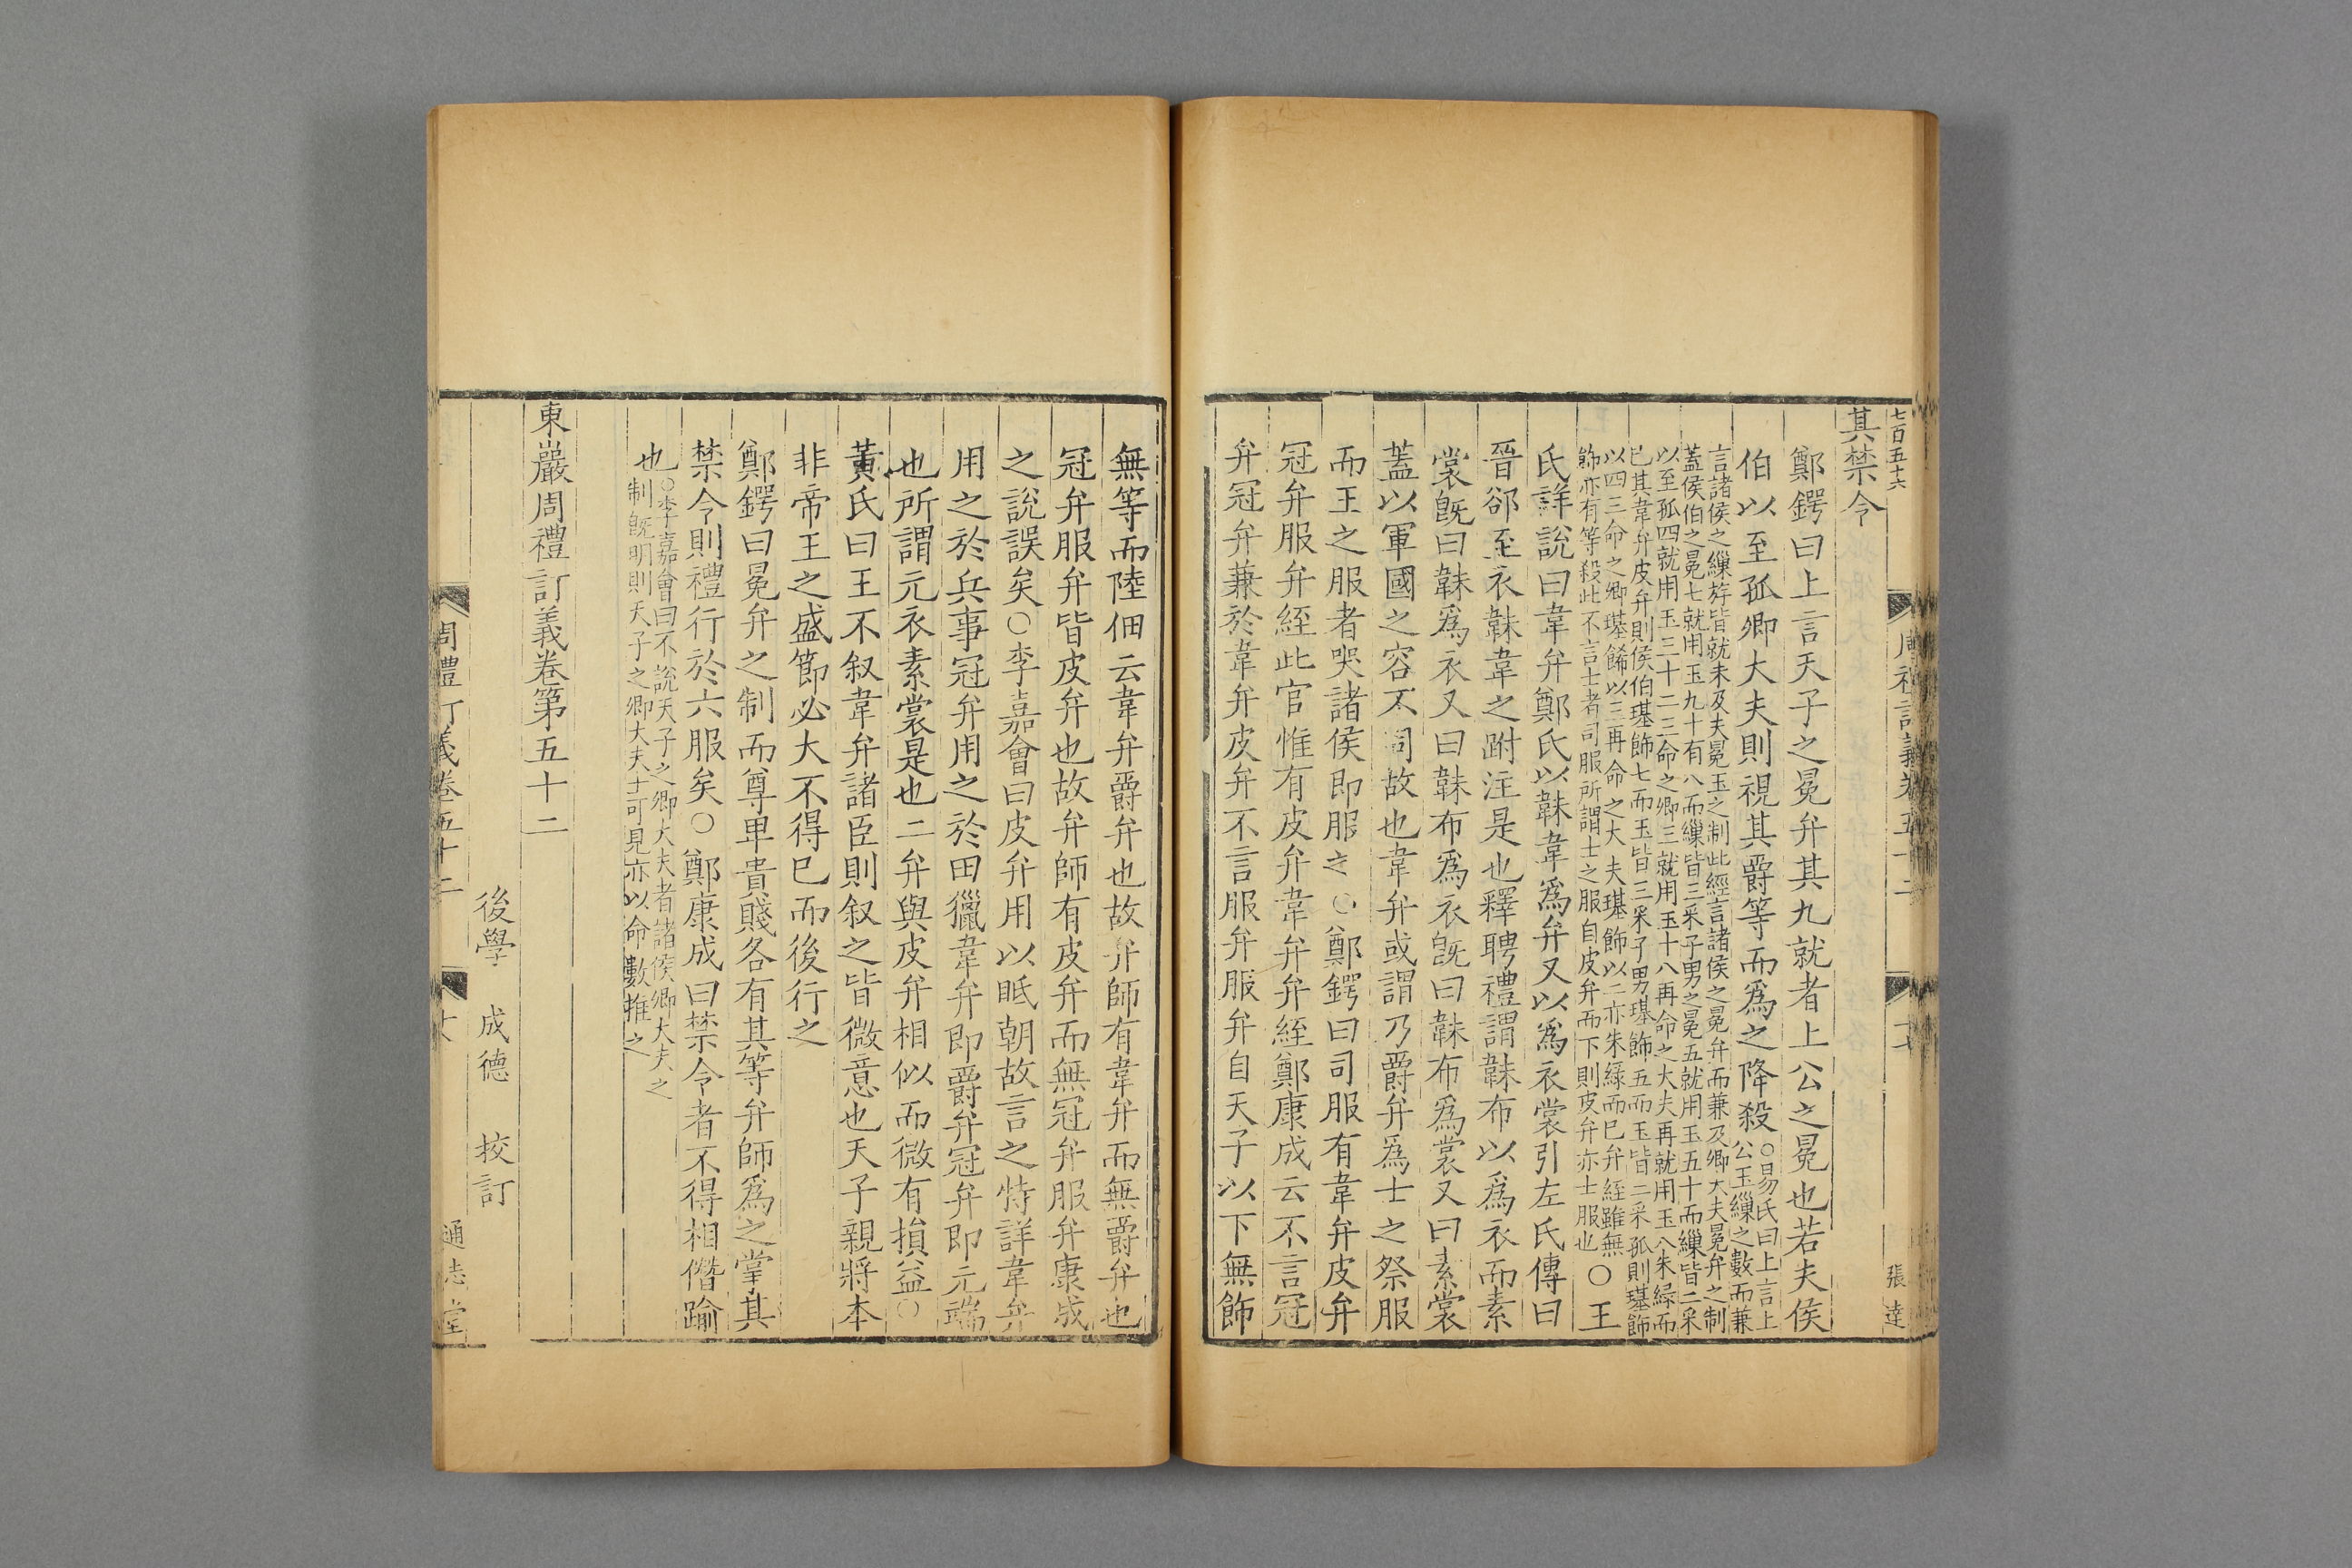 七百五十六
周禮訂義卷五十二
張達
其禁令
鄭鍔曰上言天子之冕弁其九就者上公之冕也若夫侯
伯以至孤卿大夫則視其爵等而爲之降殺
○易氏曰上言上
公玉繅之數而兼
言諸侯之繅斿皆就未及夫冕玉之制此經言諸侯之冕弁而兼及卿大夫冕弁之制
蓋侯伯之冕七就用玉九十有八而繅皆三采子男之冕五就用玉五十而繅皆二采
以至孤四就用玉三十二三命之卿三就用玉十八再命之大夫再就用玉八朱綠而
已其韋弁皮弁則侯伯璂飾七而玉皆三采子男璂飾五而玉皆二采孤則璂飾
以四三命之卿璂餙以三再命之大夫璂飾以二亦朱綠而已弁絰雖無
飾亦有等殺此不言士者司服所謂士之服自皮弁而下則皮弁亦士服也
○王
氏詳說曰韋弁鄭氏以韎韋爲弁又以爲衣裳引左氏傳曰
晉郤至衣韎韋之跗注是也釋聘禮謂韎布以爲衣而素
裳旣曰韎爲衣又曰韎布爲衣旣曰韎布爲裳又曰素裳
蓋以軍國之容不同故也韋弁或謂乃爵弁爲士之祭服
而王之服者哭諸侯即服之○鄭鍔曰司服有韋弁皮弁
冠弁服弁絰此官惟有皮弁韋弁弁絰鄭康成云不言冠
弁冠弁兼於韋弁皮弁不言服弁服弁自天子以下無飾
無等而陸佃云韋弁爵弁也故弁師有韋弁而無爵弁也
冠弁服弁皆皮弁也故弁師有皮弁而無冠弁服弁康成
之說誤矣○李嘉會曰皮弁用以眡朝故言之特詳韋弁
用之於兵事冠弁用之於田獵韋弁即爵弁冠弁即元端
也所謂元衣素裳是也二弁與皮弁相似而微有損益○
黃氏曰王不叙韋弁諸臣則叙之皆微意也天子親將本
非帝王之盛節必大不得已而後行之
鄭鍔曰冕弁之制而尊卑貴賤各有其等弁師爲之掌其
禁令則禮行於六服矣○鄭康成曰禁令者不得相僭踰
也
○李嘉會曰不說天子之卿大夫者諸侯卿大夫之
制旣明則天子之卿大夫士可見亦以命數推之
東巖周禮訂義卷第五十二
後學 成德 挍訂
周禮訂義卷五十二
通志堂